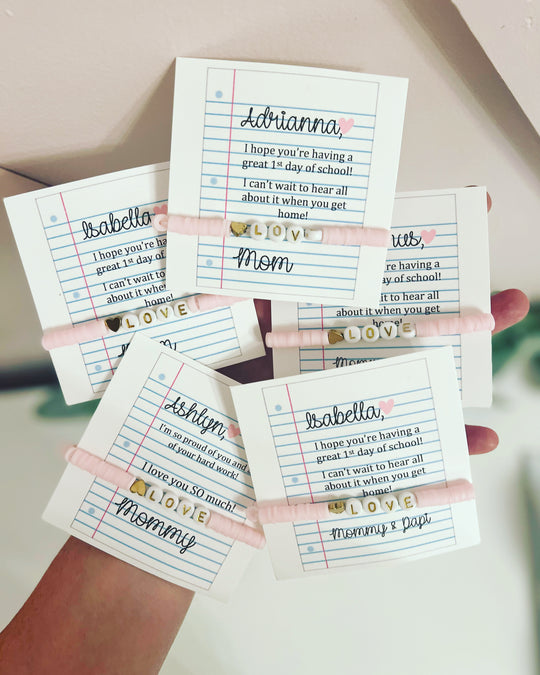 Adrianna,
I hope you're having a
great 1st day of school!
I can't wait to hear all
about it when you get
home!
LOV
Mom
Isabella
I hope you're
great 1st day of
I can't wait to
about it when
home!
LOVE
I hope you're having a
great 1st day of school!
I can't wait to hear all
about it when you get
LOVE
Ashlyn,
I'm so proud of you and
of your hard work!
I love you SO much!
LOVE
Mommy
Isabella,
I hope you're having a
great 1st day of school!
I can't wait to hear all
about it when you get
home!
LOVE
Mommy & Papi